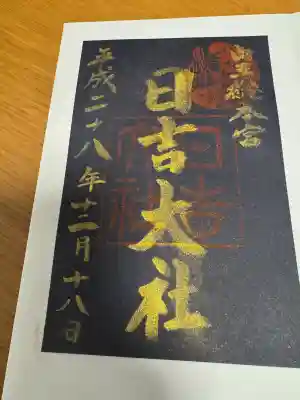 山王総本宮
日吉大社
平成二十八年十二月十八日